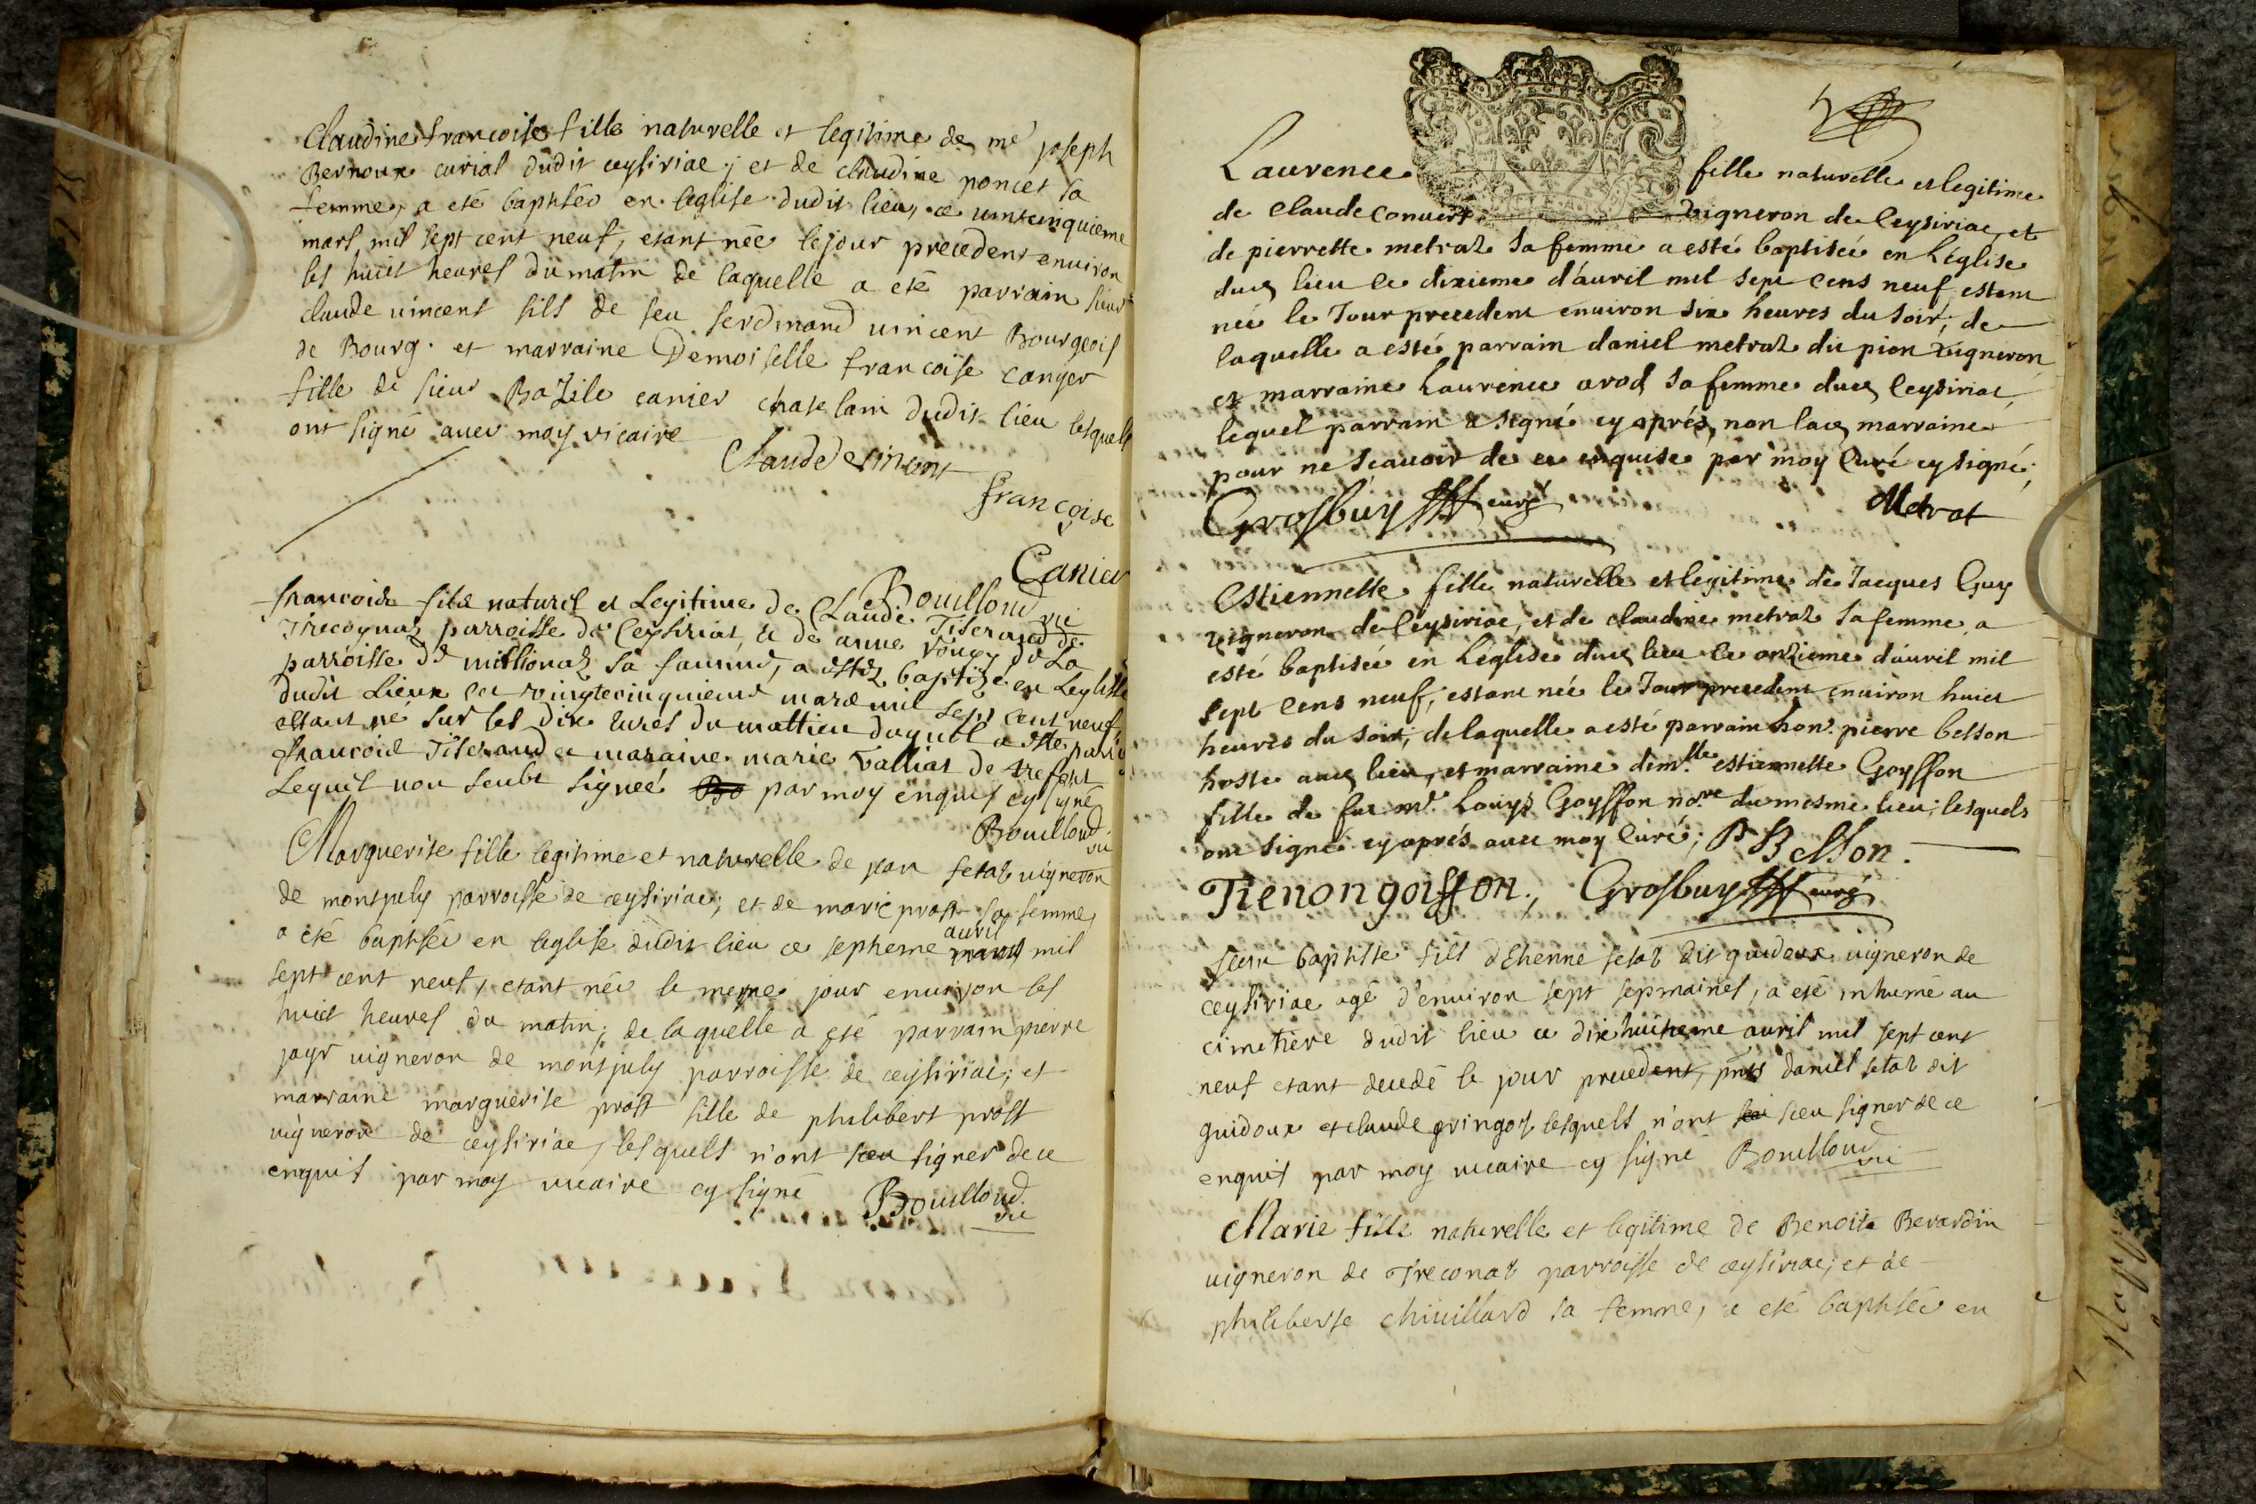 Claudine francoise fille naturelle et legitime de me joseph
Bernoux curial dudit ceysiriac; et de claudine poncet sa
femme, a eté baptisée en leglise dudit lieu, ce vint cinquieme
mars mil sept cent neuf, etant née le jour precedent environ
les huict heures du matin de laquelle a eté parrain sieur
claude vincent fils de feu ferdinand vincent Bourgeois
de Bourg. et marraine Demoiselle francoise canyer
fille de sieur Bazile canier chatelain dudit lieu lesquels
ont signé avec moy vicaire
Claude vincent
françoise
Canier
Bouilloud vic
francois fils naturel et Legitime de Claude Tiserand de
Trecognas parroisse de Ceysiriat, et de anne roux de La
parroisse de millionas sa famme, a estez baptizé en Leglise
dudit Lieux ce vingtecinquieme mars mil sept cent neuf
estant né sur les dix hures du mattien duquel a este parin
francois Tiserand et maraine marie valliat de trefort
Lequel non seubt signeé par moy enquis cy signé
Bouilloud.
vic
Marguerite fille legitime et naturelle de jean fetal vigneron
de montjuly parroisse de ceysiriac; et de marie prost sa femme,
a eté baptisée en leglise dudit lieu ce septieme mars avril mil
sept cent neuf, etant née le meme jour environ les
huict heures du matin; de laquelle a eté parrain pierre
jayr vigneron de montjuly parroisse de ceysiriac; et
marraine marguerite prost fille de philibert prost
vigneron de ceysiriac, lesquels n'ont sceu signer de ce
enquis par moy vicaire cy signé Bouilloud.
vic
Laurence fille naturelle et legitime
de claude convert vigneron de Ceysiriac, et
de pierrette metraz sa femme a esté baptisée en L'église
dud lieu ce dixieme d'avril mil sept cens neuf estant
née le Jour precedent environ six heures du soir; de
laquelle a esté parrain daniel metraz dit pion vigneron
et marraine Laurence arod sa femme dud Ceysiriat,
lequel parrain a signé cy aprés, non lad marraine
pour ne sçavoir de ce enquise par moy Curé cy signé;
Grosbuy curé Metrat
Estiennette fille naturelle et legitime de Jacques Guy
vigneron de Ceysiriac, et de claudine metraz sa femme a
esté baptisée en L'église dud lieu ce onzieme d'avril mil
sept cens neuf, estant née le Jour precedent environ huict
heures du soir, de laquelle a esté parrain hon. pierre belson
hoste aud lieu, et marraine demlle estiennette Goyffon
fille de feu me. Louys Goyffon nore. du mesme lieu; lesquels
ont signé cy aprés avec moy Curé; P Belson.
Tienon goiffon., Grosbuy curé
jean baptiste fils d'Etienne fetal dit guidoux vigneron de
ceysiriac agé d'environ sept sepmaines, a eté inhumé au
cimetiere dudit lieu ce dixhuitieme avril mil sept cent
neuf etant decedé le jour precedent, pnts daniel fetal dit
guidoux et claude gringoz lesquels n'ont sceu signer de ce
enquis par moy vicaire cy signé Bouilloud
vic
Marie fille naturelle et legitime de Benoite Berardin
vigneron de Treconat parroisse de ceysiriac; et de
philiberte chivillard sa femme, a eté baptisée en